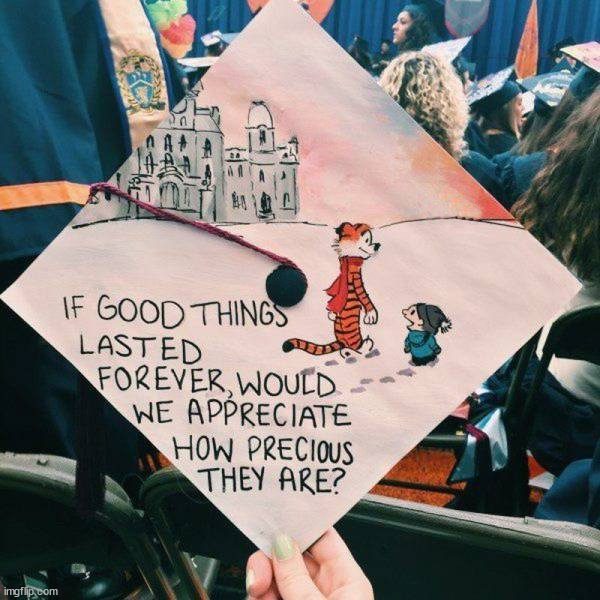 IF GOOD THINGS
LASTED
FOREVER, WOULD
WE APPRECIATE
HOW PRECIOUS
THEY ARE?
imgflip.com